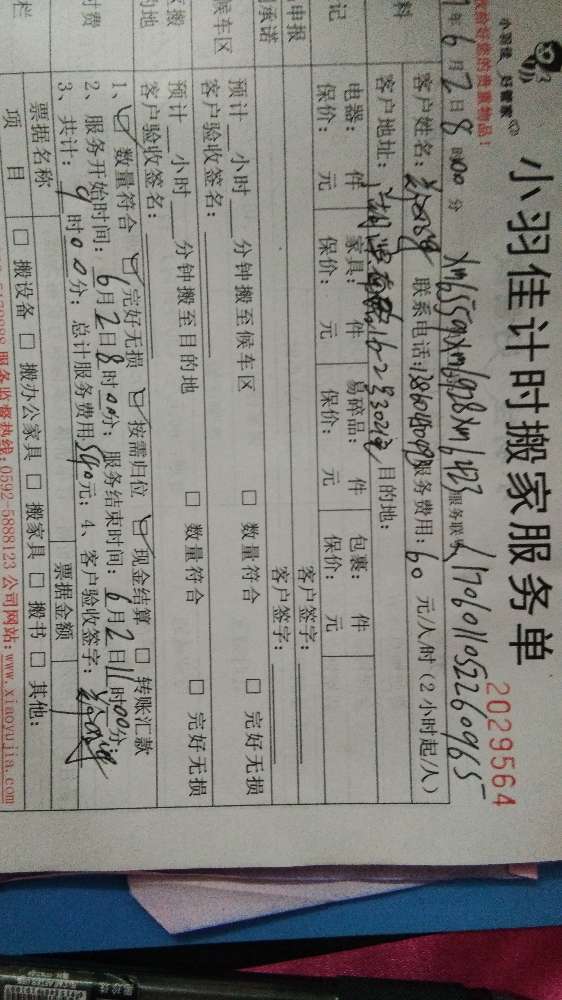 小羽佳 好管家
收拾好您的贵重物品!
小羽佳计时搬家服务单
2029564
年6月2日8时00分 xm6559xm6928xm6423 服务联号
客户姓名: 联系电话: 服务费用:60元/人/时(2小时起/人)
料 客户地址: 目的地:
记 电器: 件 家具: 件 易碎品: 件 包裹: 件
保价: 元 保价: 元 保价: 元 保价: 元
申报 客户签字:
承诺 客户签字:
候车区 预计 小时 分钟搬至候车区 □ 数量符合 □ 完好无损
客户验收签名:
区搬 预计 小时 分钟搬至目的地 □ 数量符合 □ 完好无损
的地 客户验收签名:
1、☑ 数量符合 ☑ 完好无损 ☑ 按需归位 ☑ 现金结算 □ 转账汇款
付费 2、服务开始时间:6月2日8时00分;服务结束时间:6月2日11时00分
3、共计:9时00分;总计服务费用540元;4、客户验收签字:
票据名称 票据金额
栏 项目 □ 搬设备 □ 搬办公家具 □ 搬家具 □ 搬书 □ 其他:
服务监督热线:0592-5888123 公司网站:www.xiaoyujia.com